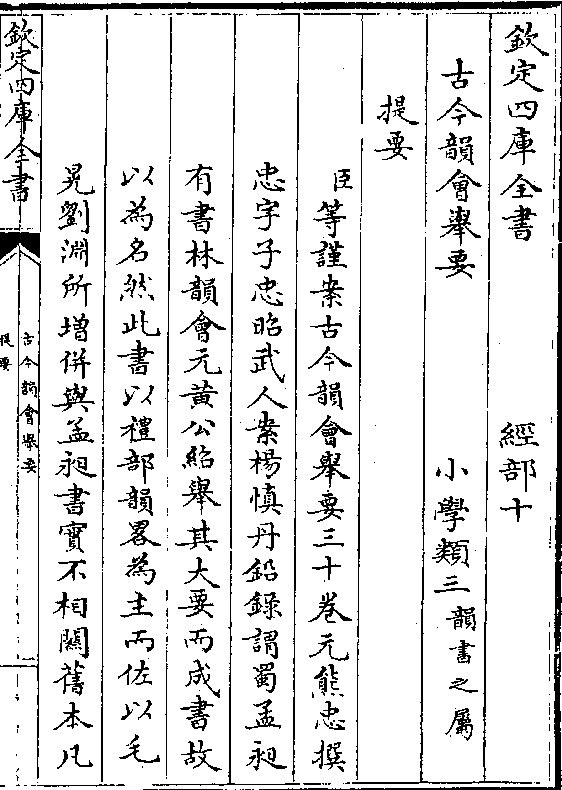 欽定四庫全書 經部十
古今韻會舉要 小學類三韻書之屬
提要
臣等謹案古今韻會舉要三十卷元熊忠撰
忠字子忠昭武人案楊慎丹鉛錄謂蜀孟昶
有書林韻會元黃公紹舉其大要而成書故
以為名然此書以禮部韻畧為主而佐以毛
晃劉淵所增併與孟昶書實不相關舊本凡
欽定四庫全書
古今韻會舉要
提要
一